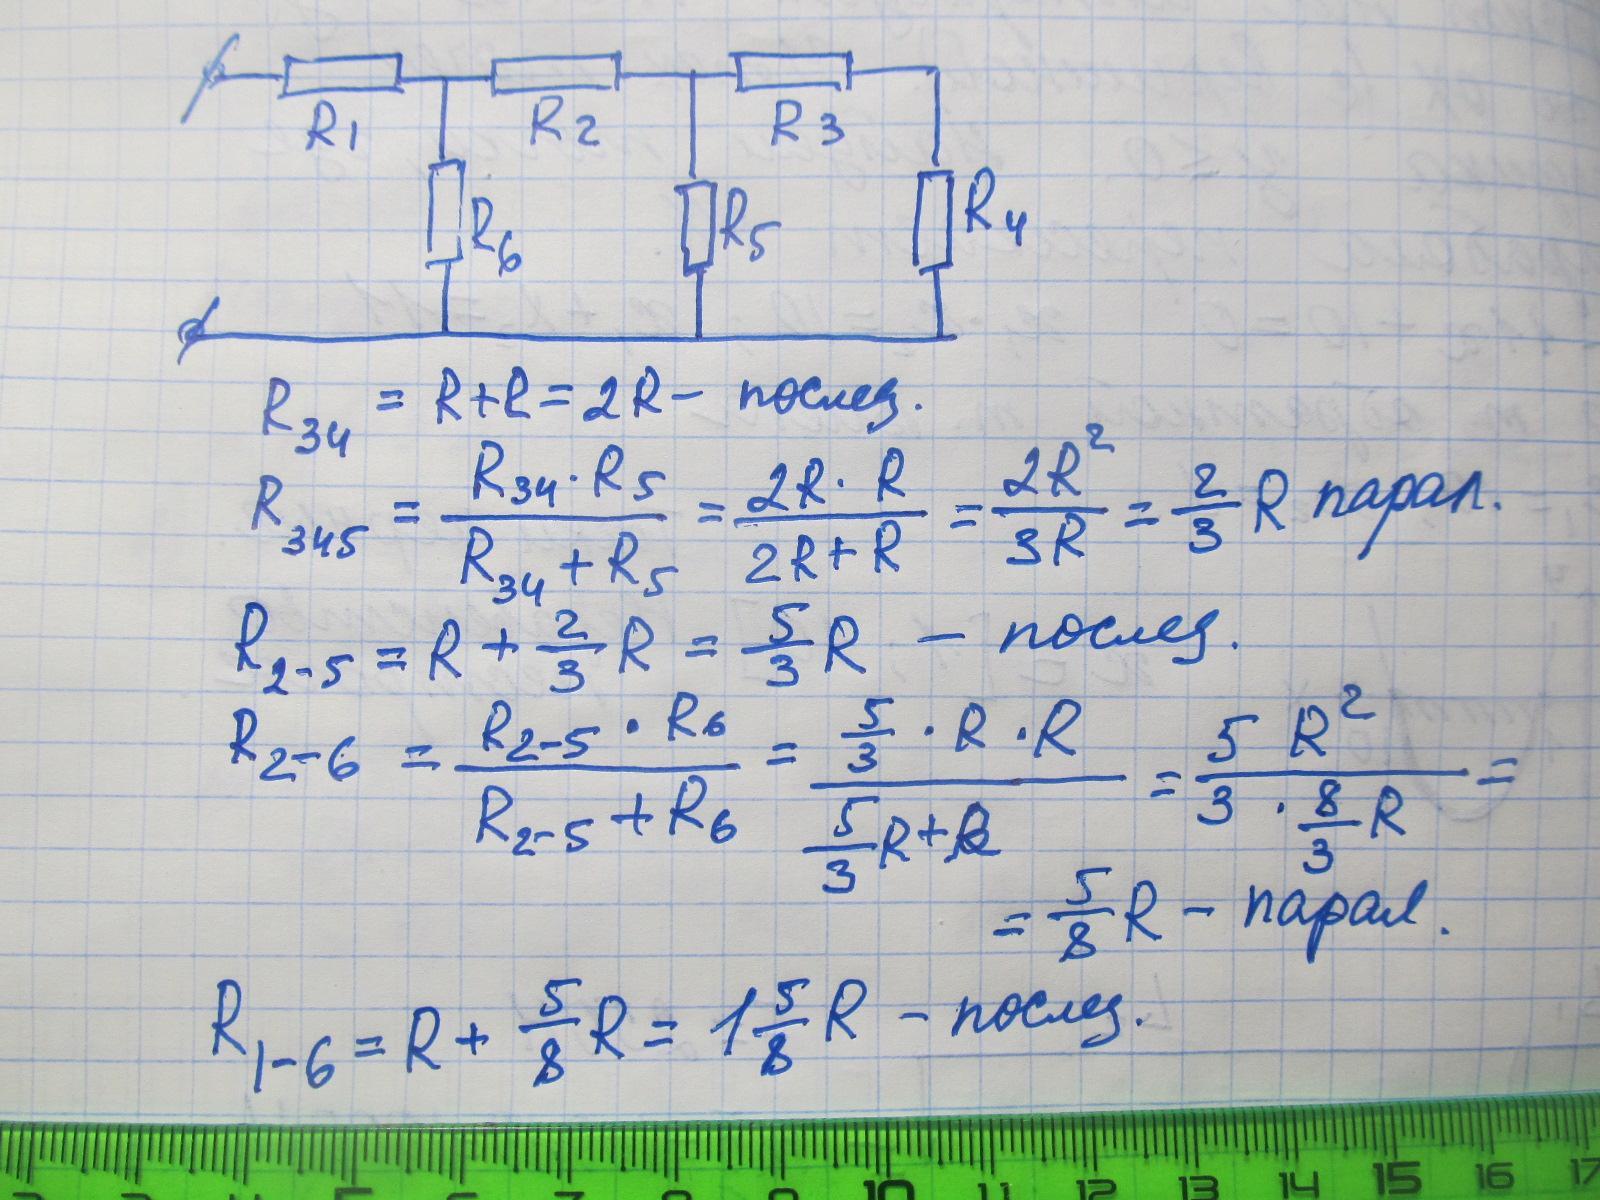 R1 R2 R3
R6 R5 R4
R34 = R+R = 2R – послед.
R345 = (R34 · R5)/(R34 + R5) = (2R · R)/(2R + R) = 2R²/3R = 2/3 R парал.
R2-5 = R + 2/3 R = 5/3 R – послед.
R2-6 = (R2-5 · R6)/(R2-5 + R6) = (5/3 · R · R)/(5/3 R + R) = (5 R²)/(3 · 8/3 R) =
= 5/8 R – парал.
R1-6 = R + 5/8 R = 1 5/8 R – послед.
2 3 4 5 6 7 8 9 10 11 12 13 14 15 16 17